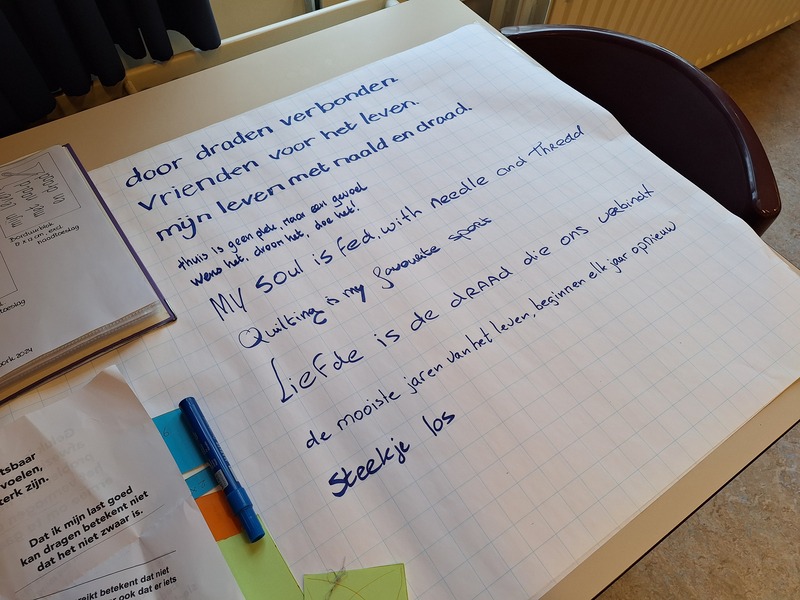 door draden verbonden
vrienden voor het leven.
mijn leven met naald en draad.
thuis is geen plek, maar een gevoel
wens het, droom het, doe het!
My soul is fed, with needle and thread
Quilting is my favourite sport
Liefde is de draad die ons verbindt
de mooiste jaren van het leven, beginnen elk jaar opnieuw
Steekje los
Borduurblok
naadtoeslag
toeslag
2024
tsbaar
voelen,
erk zijn.
Dat ik mijn last goed
kan dragen betekent niet
dat het niet zwaar is.
reikt betekent dat niet
ook dat er iets